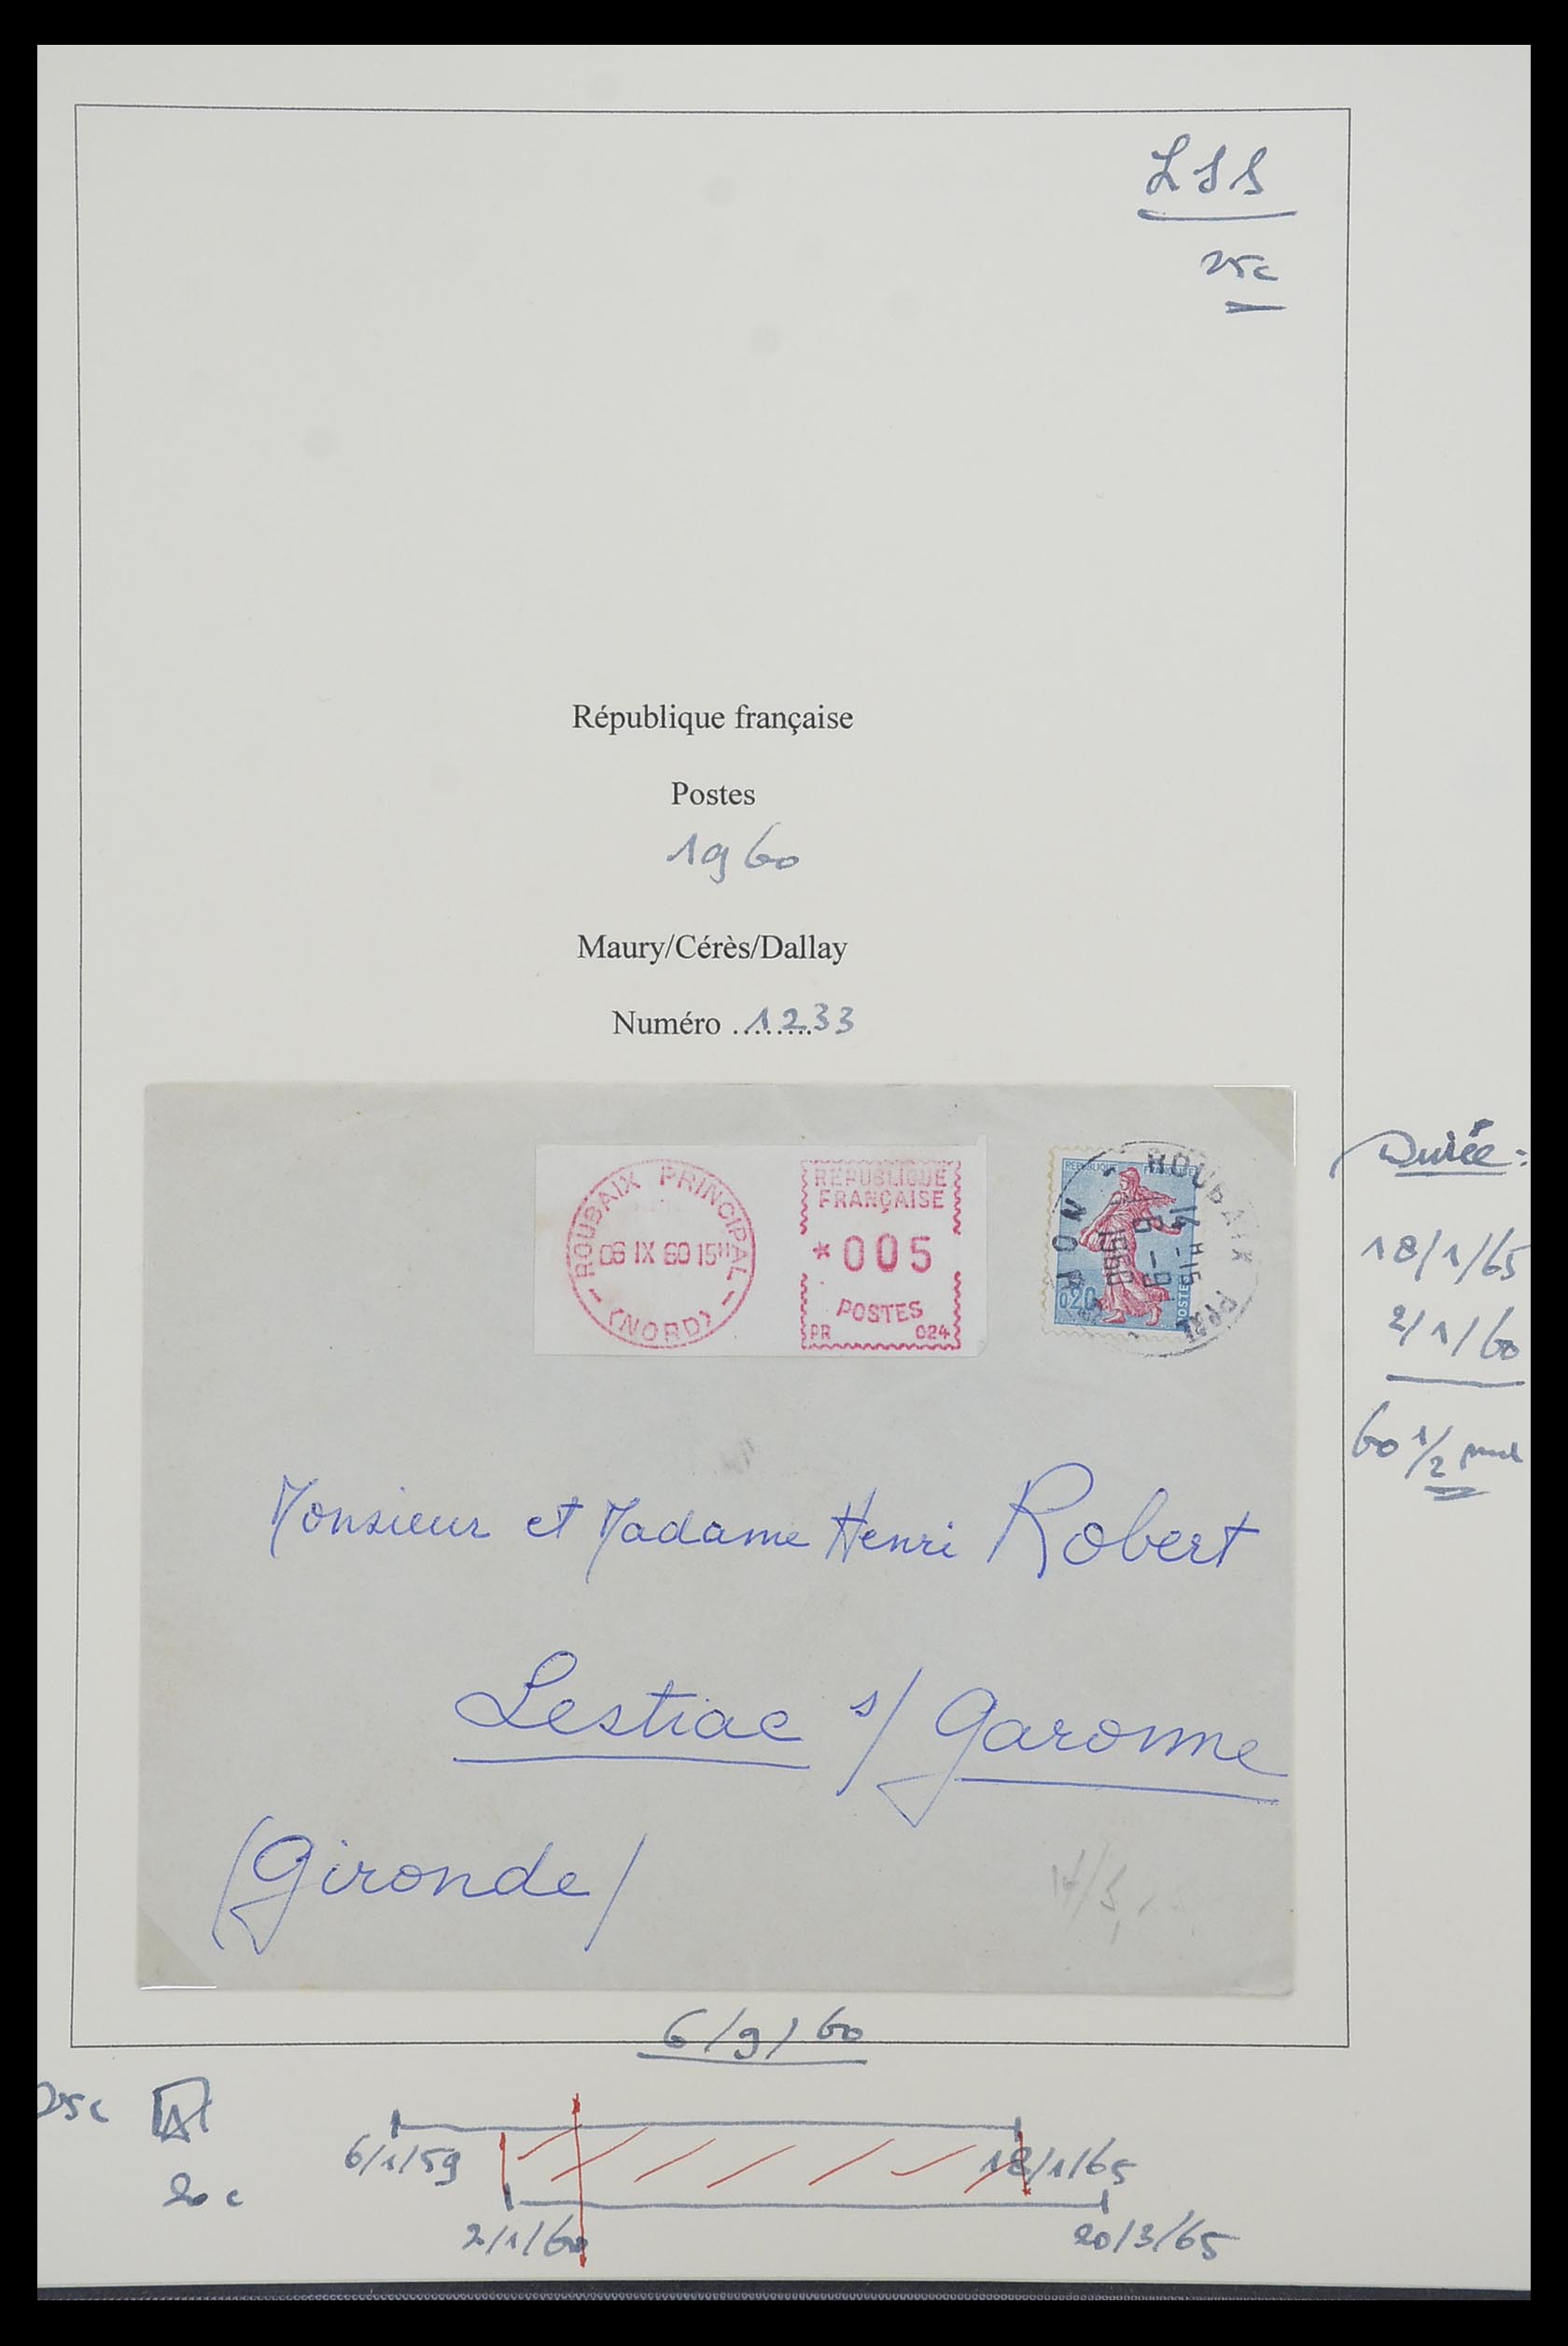 LSS
25c
République française
Postes
1960
Maury/Cérès/Dallay
Numéro ........1233
ROUBAIX PRINCIPAL
06 IX 60 15H
(NORD)
REPUBLIQUE
FRANÇAISE
*005
POSTES
PR 024
ROUBAIX
NORD
14H15
6-9
1960
0,20
POSTES
Durée :
18/1/65
2/1/60
60 1/2
Monsieur et Madame Henri Robert
Lestiac s/ Garonne
(Gironde)
6/9/60
25c
6/1/59 18/1/65
20c
2/1/60 20/3/65